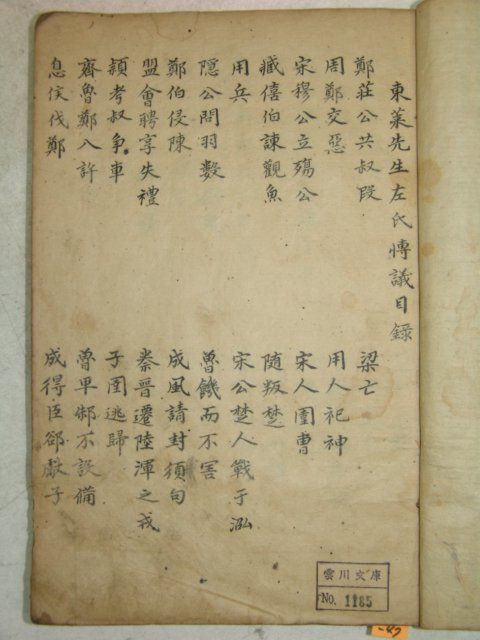 東萊先生左氏博議目錄
鄭莊公共叔段
周鄭交惡
宋穆公立殤公
臧僖伯諫觀魚
用兵
隱公問羽數
鄭伯侵陳
盟會聘享失禮
頴考叔争車
齊魯鄭入許
息侯伐鄭
梁亡
用人祀神
宋人圍曹
随叛楚
宋公楚人戰于泓
魯饑而不害
成風請封須句
秦晉遷陸渾之戎
子圉逃歸
魯卑邾不設備
成得臣郤獻子
雲川文庫
No. 1185